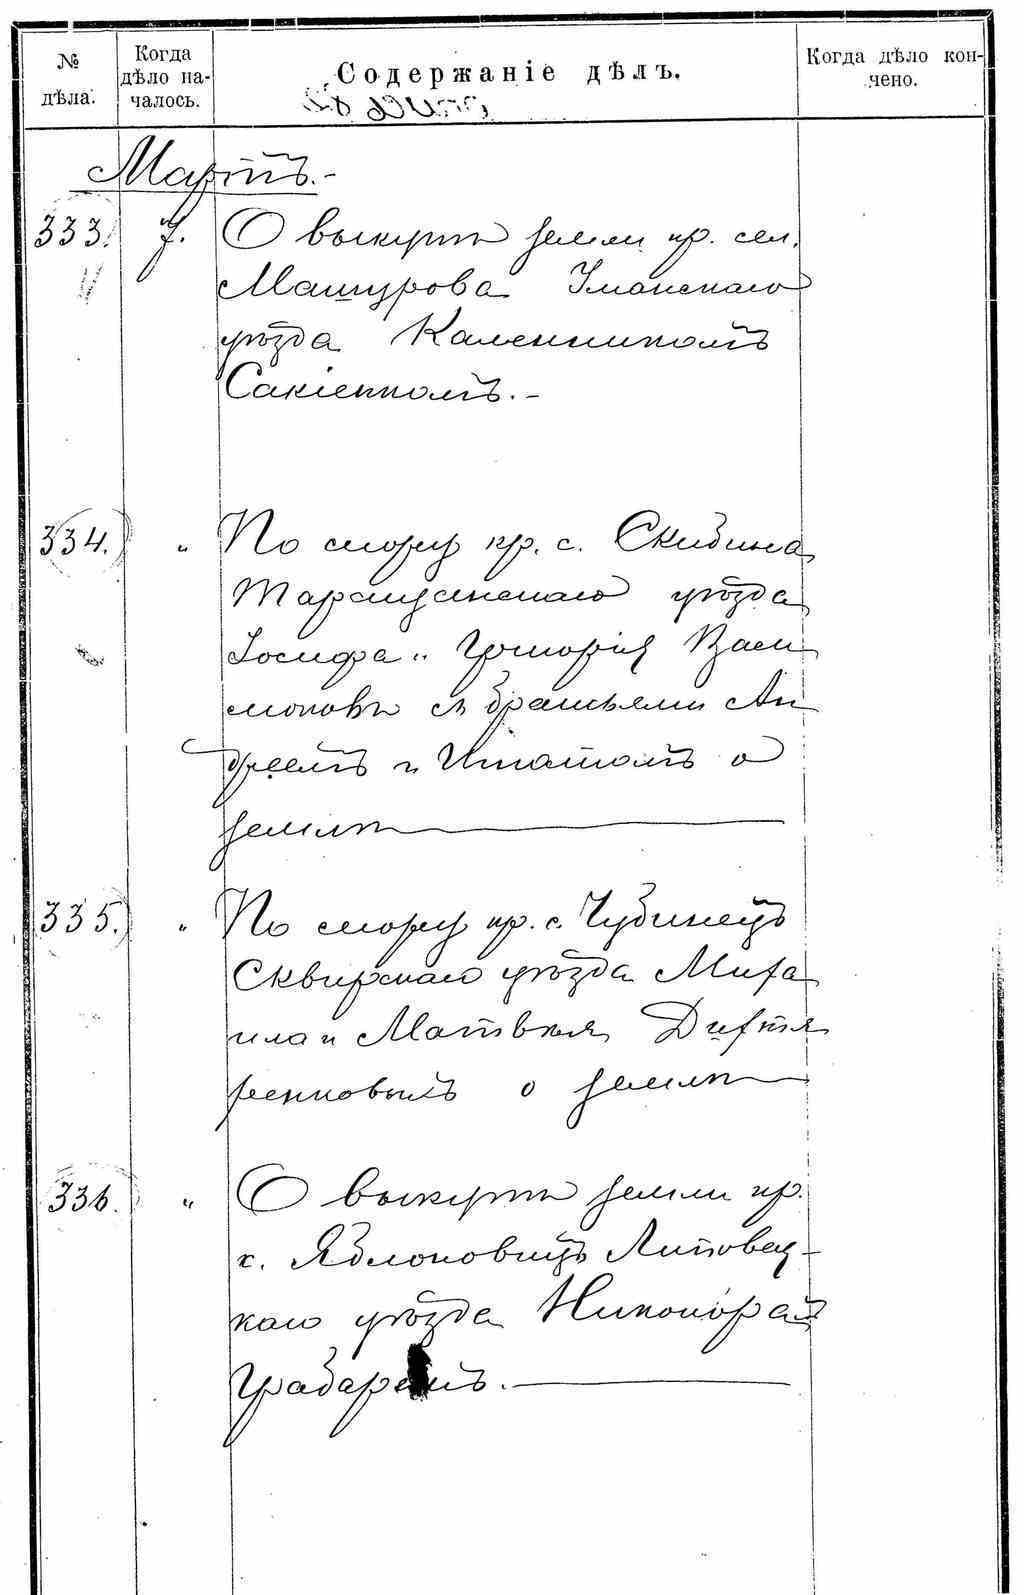 № дѣла.
Когда дѣло на-
чалось.
Содержаніе дѣлъ.
Когда дѣло кон-
чено.
Мартъ.-
333. 7. О выкупѣ земли кр. сел.
Машурова Уманскаго
уѣзда Каленникомъ
Сакіенкомъ.-
334. " По спору кр. с. Скибина
Таращанскаго уѣзда
Іосифа и Григорія
съ братьями Ан
дреемъ и Игнатомъ о
землѣ
335. " По спору кр. с. Чубинецъ
Сквирскаго уѣзда Миха
ила и Матвѣя Дихтя
ренковыхъ о землѣ
336. " О выкупѣ земли кр.
с. Яблоновицъ Липовец-
каго уѣзда